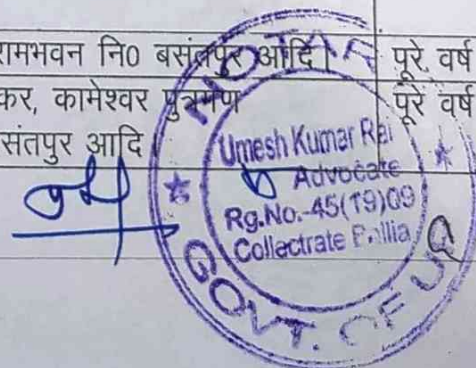 रामभवन नि0 बसंतपुर आदि। पूरे वर्ष
कर, कामेश्वर पुत्रगण पूरे वर्ष
संतपुर आदि
NOTARY
Umesh Kumar Rai
Advocate
Rg.No.-45(19)09
Collectrate Ballia
GOVT. OF U